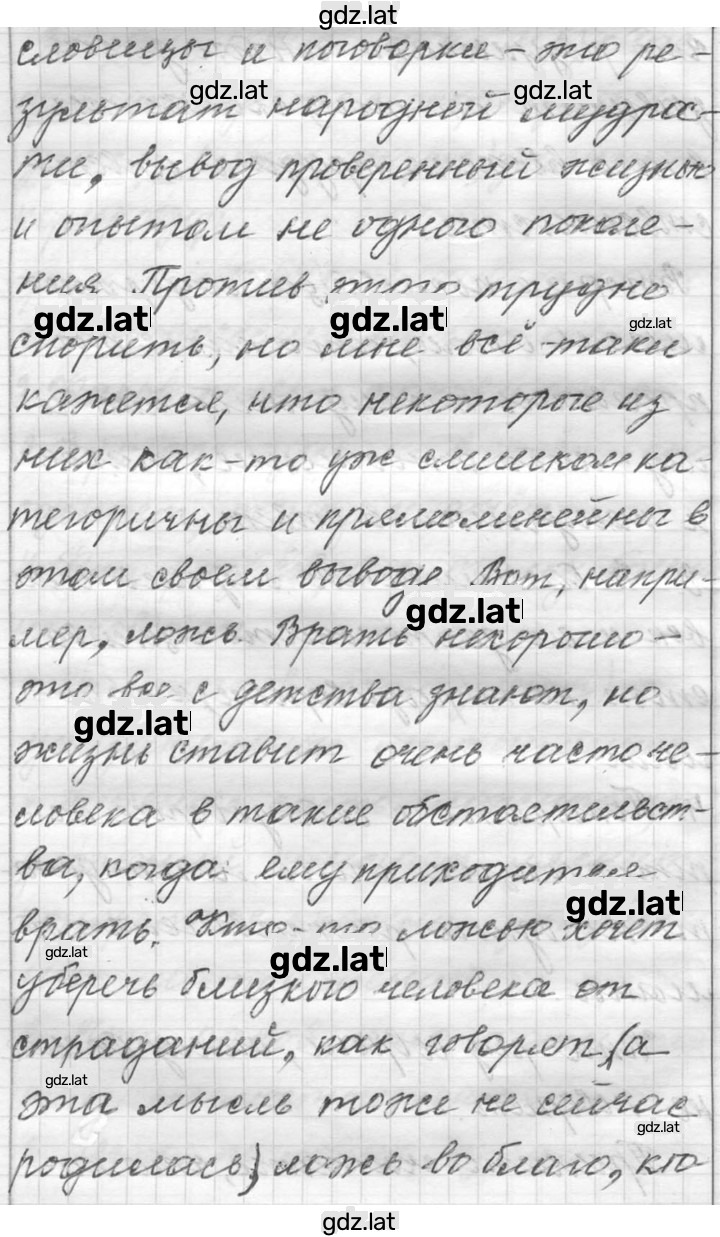 gdz.lat
словицы и поговорки – это ре-
gdz.lat gdz.lat
зультат народной мудрос-
ти, вывод проверенный жизнью
и опытом не одного поколе-
ния. Против этого трудно
gdz.lat gdz.lat gdz.lat
спорить, но мне всё-таки
кажется, что некоторые из
них как-то уж слишком ка-
тегоричны и прямолинейны в
этом своем выводе. Вот, напри-
gdz.lat
мер, ложь. Врать нехорошо –
это все с детства знают, но
gdz.lat
жизнь ставит очень часто че-
ловека в такие обстоятельст-
ва, когда ему приходится
gdz.lat
врать. Кто-то ложью хочет
gdz.lat gdz.lat
уберечь близкого человека от
страданий, как говорят, (а
gdz.lat
эта мысль тоже не сейчас
gdz.lat
родилась) ложь во благо, кто
gdz.lat